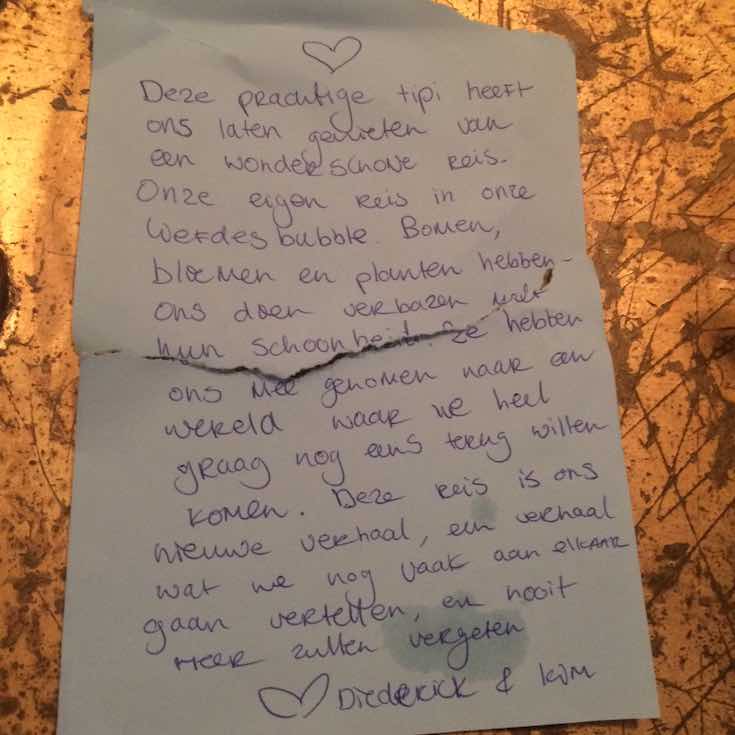 Deze prachtige tipi heeft
ons laten genieten van
een wonderschone reis.
Onze eigen reis in onze
liefdesbubble. Bomen,
bloemen en planten hebben
ons doen verbazen met
hun schoonheid. Ze hebben
ons mee genomen naar een
wereld waar we heel
graag nog eens terug willen
komen. Deze reis is ons
nieuwe verhaal, een verhaal
wat we nog vaak aan elkaar
gaan vertellen, en nooit
meer zullen vergeten
Diederick & Kim